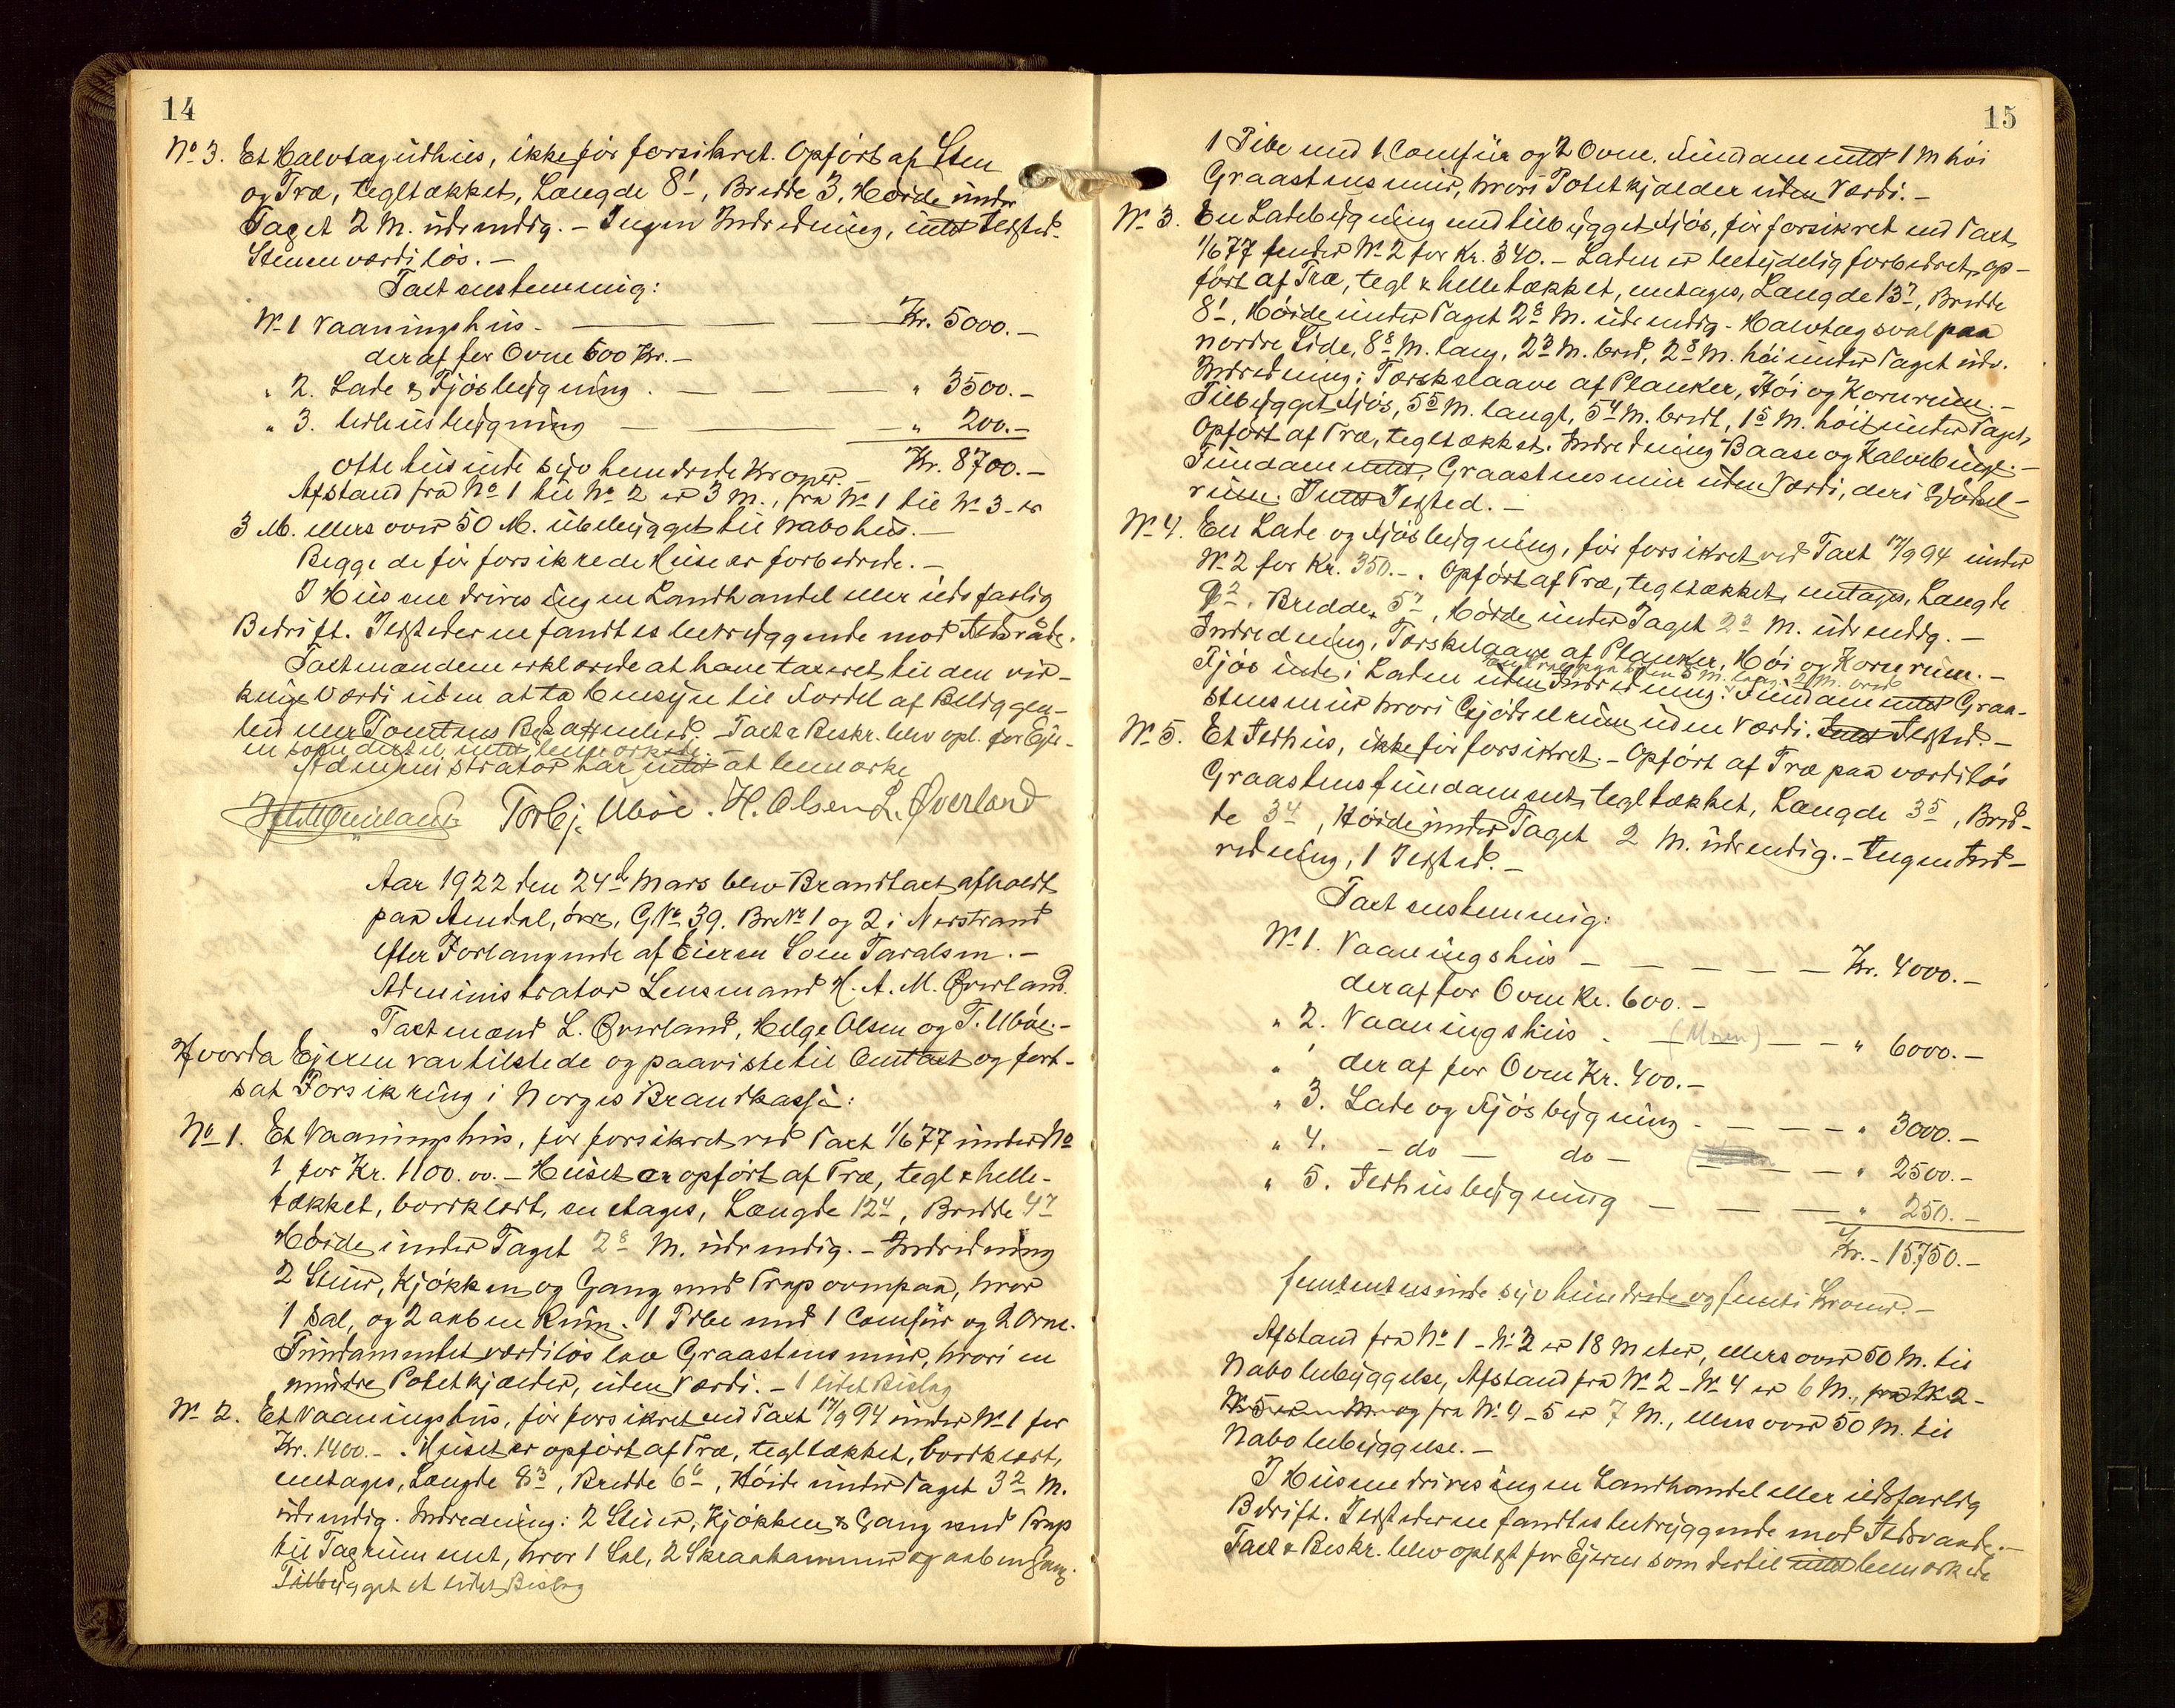 14
No 3. Et Halvtagudhus, ikke før forsikret. Opført af Sten
og Træ, tegltækket, Længde 8¹, Bredde 3, Høide under
Taget 2 M. udvendig. – Ingen Indredning, intet Ildsted.
Stenen værdiløs. –
Taxt enstemmig:
No 1 Vaaningshus – Kr. 5000. –
deraf for Ovne 600 Kr. –
" 2. Lade & Fjøsbygning. – " 3500. –
" 3. Udhusbygning – " 200. –
Kr. 8700. –
otte tusinde syv hundrede Kroner. –
Afstand fra No 1 til No 2 er 3 M., fra No 1 til No 3 – er
3 M. ellers over 50 M. ubebygget til Nabohus. –
Begge de før forsikrede Huse er forbedrede. –
I Husene drives ingen Landhandel eller ildsfarlig
Bedrift. Ildstederne fandtes betryggende mod Ildsvåde.
Taxtmændene erklærede at have taxeret til den vir-
kelige Værdi uden at ta Hensyn til Fordel af Beliggen-
hed eller Tomtens Beskaffenhed. – Taxt & Beskr. blev opl. for Eje-
en som dertil intet bemærkede.
Administrator har intet at bemærke
Torbj. Ubøe. H. Olsen L. Øverland
Aar 1922 den 24de Mars blev Brandtaxt afholdt
paa Amdal, øvre, GNo 39. BrNo 1 og 2 i Nerstrand
efter Forlangende af Eieren Sven Taralsen. –
Administrator Lensmand H. A. M. Øverland.
Taxtmænd L. Øverland, Helge Olsen og T. Ubøe. –
Hvorda Ejeren var tilstede og paaviste til Omtaxt og fort-
sat Forsikring i Norges Brandkasse:
No 1. Et Vaaningshus, før forsikret ved Taxt 1/6 77 under No
1 for Kr. 1100.00. – Huset er opført af Træ, tegl & helle-
tækket, bordklædt, en etages, Længde 12⁴, Bredde 4⁷
Høide under Taget 2⁸ M. udvendig. – Indredning
2 Stuer, Kjøkken og Gang med Trap ovenpaa, hvor
1 Sal, og 2 aabne Rum. 1 Pibe med 1 Comfur og 2 Ovne.
Fundamentet værdiløs lav Graastensmur, hvori en
mindre Potetkjælder, uden Værdi. – 1 lidet Bislag
No 2. Et Vaaningshus, før forsikret ved Taxt 17/9 94 under No 1 for
Kr. 1400. – . Huset er opført af Træ, tegltækket, bordklædt,
enetages, Længde 8³, Bredde 6⁶, Høide under Taget 3² M.
udvendig. Indredning: 2 Stuer, Kjøkken & Gang med Trap
til Tagrummet, hvor 1 Sal, 2 Skraakammer og aaben Gang.
Tilbygget et lidet Bislag
15
1 Pibe med 1 Comfur og 2 Ovne. Fundamentet 1 M høi
Graastensmur, hvori Potetkjælder uden Værdi. –
No 3. En Ladebygning med tilbygget Fjøs, før forsikret ved Taxt
1/6 77 under No 2 for Kr. 340. – Laden er betydelig forbedret, op-
ført af Træ, tegl & helletækket, enetages, Længde 13⁷, Bredde
8¹, Høide under Taget 2⁸ M. udvendig. Halvtagsval paa
nordre Side, 8⁸ M. lang, 2³ M. bred, 2³ M. høi under Taget udv.
Indredning: Tærskelaave af Planker, Høi og Kornrum. –
Tilbygget Fjøs, 5⁵ M. langt, 5⁴ M. bredt, 1⁵ M. høit under Taget,
Opført af Træ, tegltækket. Indredning Baase og Kalvebinge. –
Fundamentet, Graastensmur uden Værdi, deri Gjødsel-
rum. Intet Ildsted. –
No 4. En Lade og Fjøsbygning, før forsikret ved Taxt 17/9 94 under
No 2 for Kr. 350. – . Opført af Træ, tegltækket, enetages, Længde
9², Bredde 5⁷, Høide under Taget 2³ M. udvendig. –
Indredning, Tærskelaave af Planker, Høi og Kornrum. –
5 M. lang, 2 M. bred
Fjøs inde i Laden uden Indredning. Fundamentet Graa-
stensmur hvori Gjødselrum uden Værdi. Intet Ildsted. –
No 5. Et Ildhus, ikke før forsikret. – Opført af Træ paa værdiløs
Graastensfundament, tegltækket, Længde 3⁵, Bred-
de 3⁴, Høide under Taget 2 M. udvendig. – Ingen Ind-
redning, 1 Ildsted. –
Taxt enstemmig:
No 1. Vaaningshus – – – – – Kr. 4000. –
deraf for Ovne Kr. 600. –
" 2. Vaaningshus – – – " 6000. –
" deraf for Ovne Kr. 400. –
" 3. Lade og Fjøsbygning – – – – " 3000. –
" 4. – do – do – – – " 2500. –
" 5. Ildhusbygning – – – " 250. –
Kr. – 15750. –
femtentusinde syv hundrede og femti Kroner. –
Afstand fra No 1 – No 2 er 18 Meter, ellers over 50 M. til
Nabobebyggelse, Afstand fra No 2 – No 4 er 6 M., fra No 2 –
No 5 er M. og fra No 4 – 5 er 7 M., ellers over 50 M. til
Nabobebyggelse. –
I Husene drives ingen Landhandel eller ildsfarlig
Bedrift. Ildstederne fandtes betryggende mod Ildsvaade. –
Taxt & Beskr. blev oplæst for Ejeren som dertil intet bemærkede